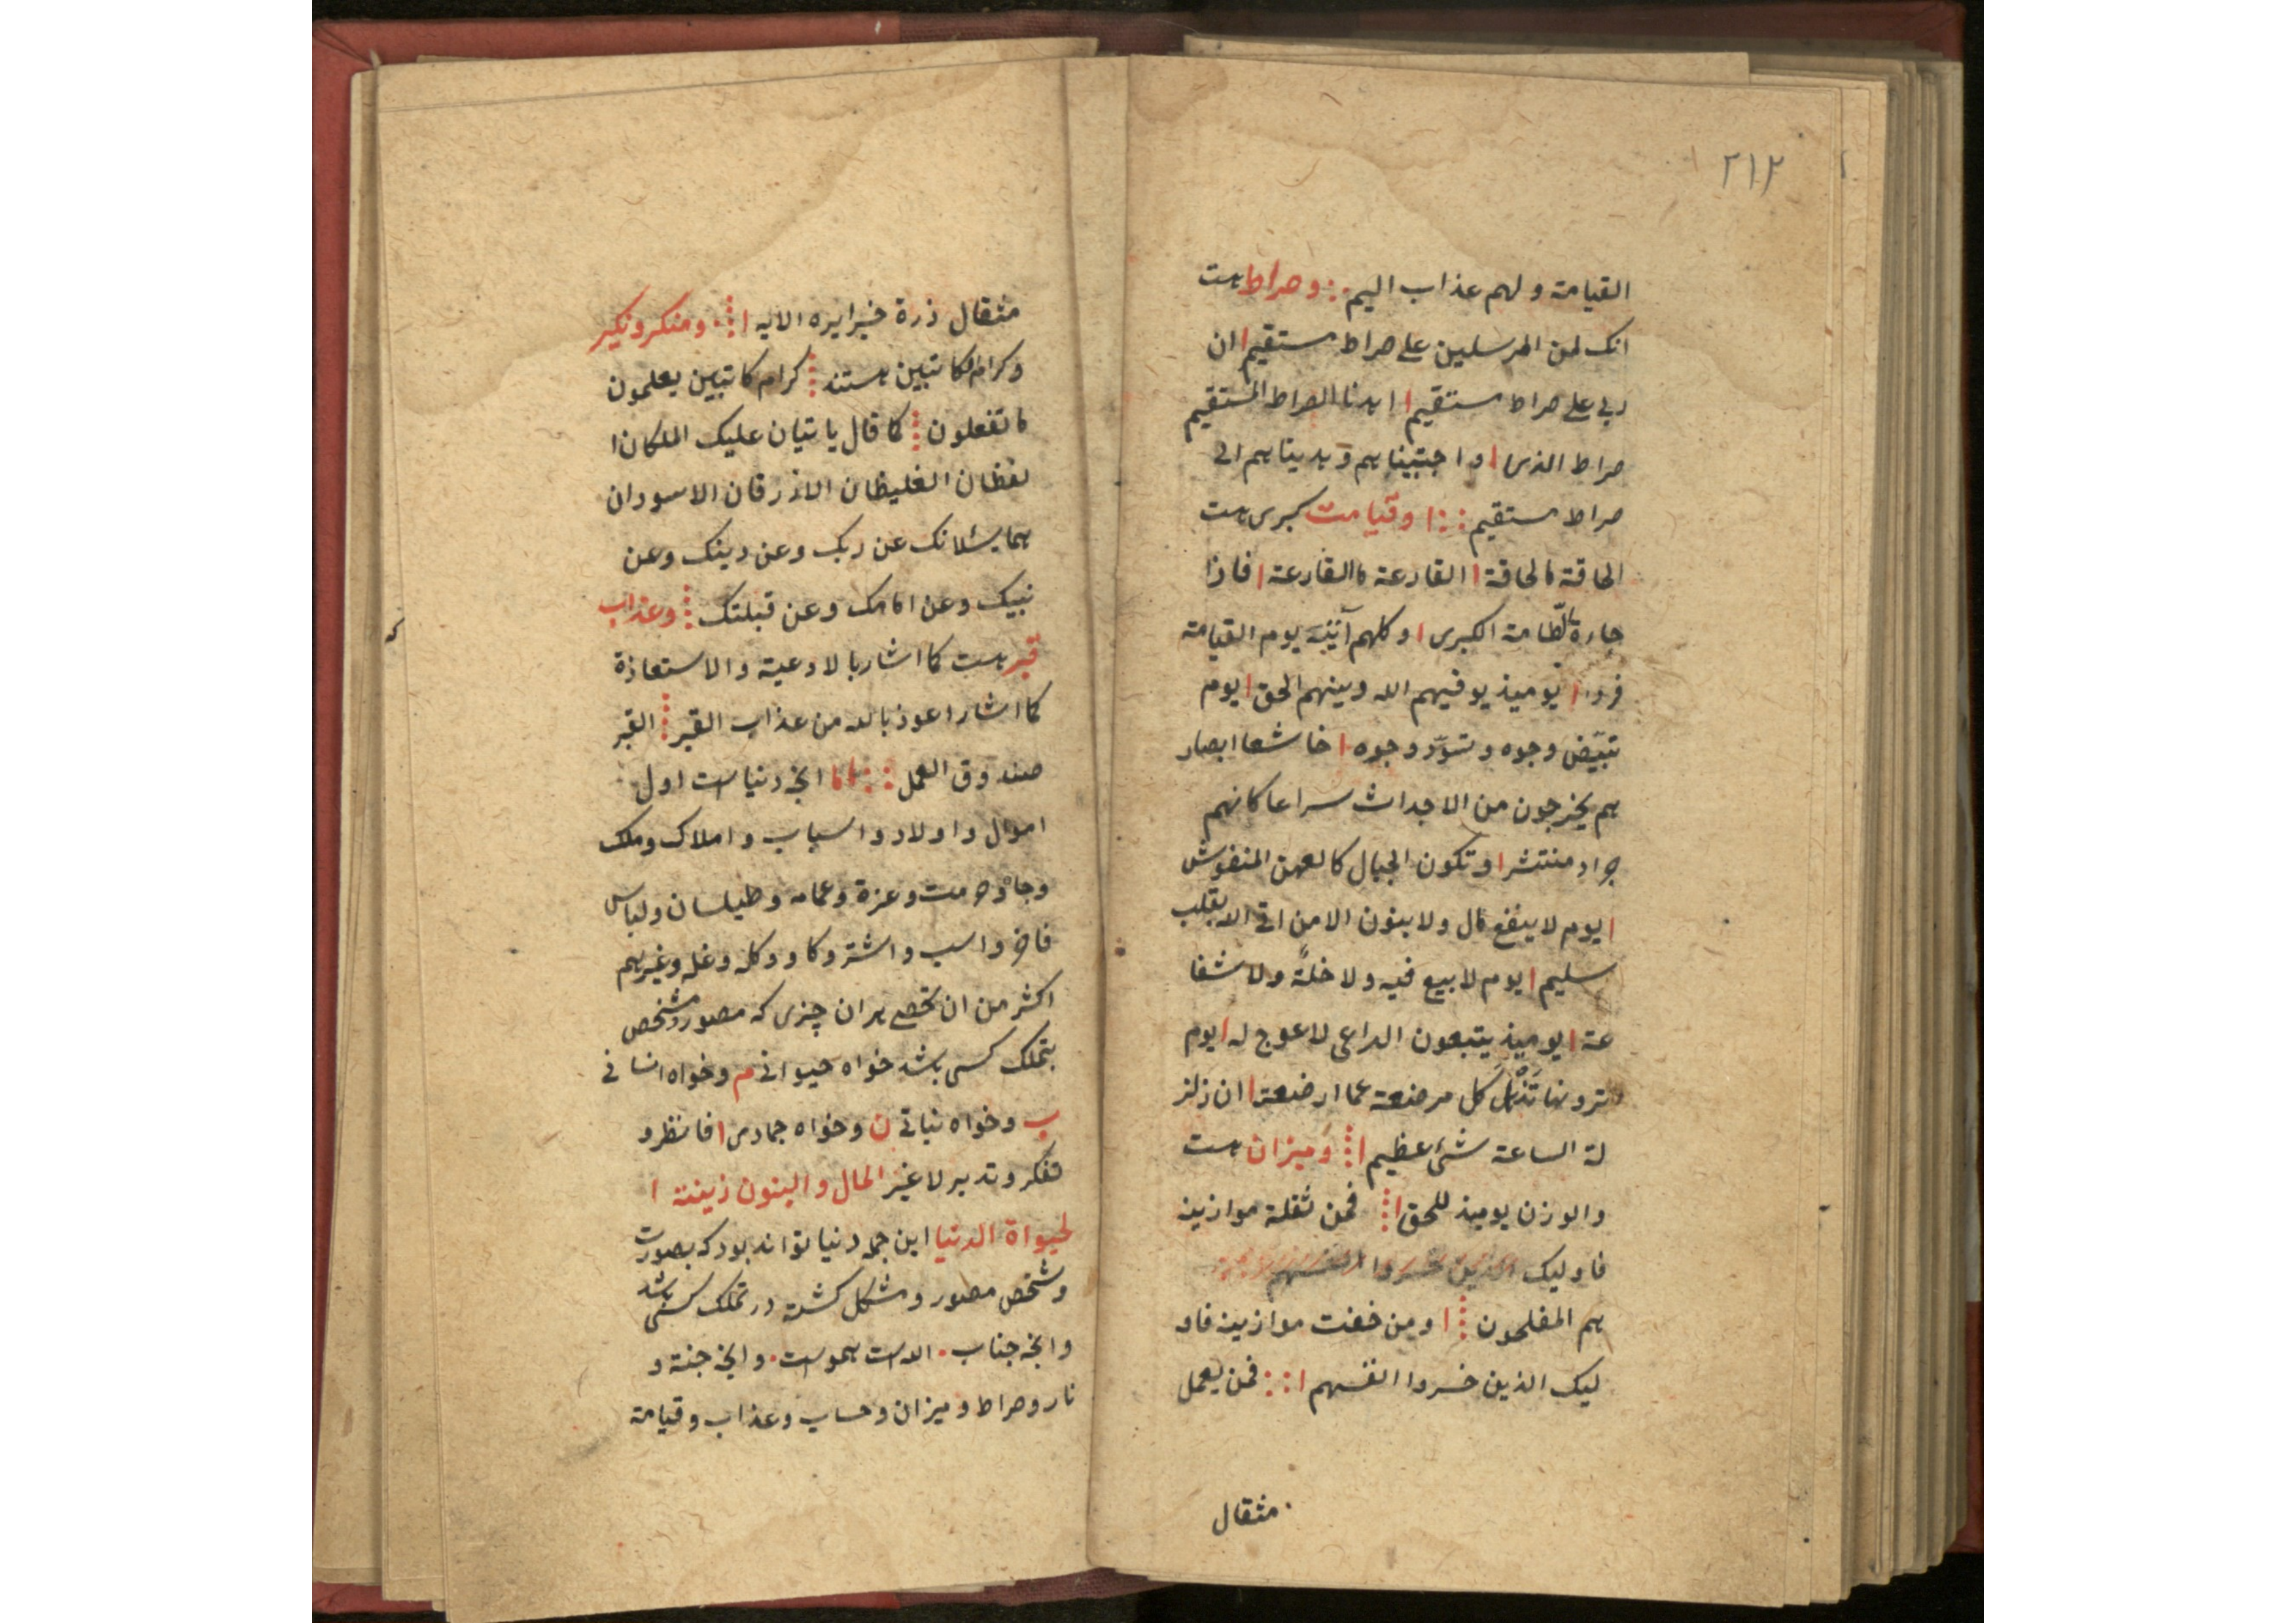 ۲۱۳
القیامة ولهم عذاب الیم وصراط هست
انک لمن المرسلین علی صراط مستقیم ان
ربی علی صراط مستقیم اهدنا الصراط المستقیم
صراط الذی واجتبیناهم وهدیناهم الی
صراط مستقیم وقیامت کبری هست
الحاقة ماالحاقة القارعة ماالقارعة فاذا
جاءة الطامة الکبری وکلهم آتیه یوم القیامة
فردا یومیذ یوفیهم الله دینهم الحق یوم
تبیّض وجوه وتسوّد وجوه خاشعا ابصار
هم یخرجون من الاجداث سراعا کانهم
جراد منتشر وتکون الجبال کالعهن المنفوش
یوم لا ینفع مال ولا بنون الا من اتی الله بقلب
سلیم یوم لا بیع فیه ولا خلّة ولا شفا
عة یومیذ یتبعون الداعی لا عوج له یوم
ترونها تَذهَلُ کل مرضعة عما ارضعة ان زلز
لة الساعة شیٔ عظیم ومیزان هست
والوزن یومیذ للحق فمن ثقلة موازینه
فاولیک الذین خسروا انفسهم
هم المفلحون ومن خفت موازینه فاو
لیک الذین خسروا انفسهم فمن یعمل
مثقال
مثقال ذرة خیرا یره الایه ومنکر ونکیر
وکرام کاتبین هستند کرام کاتبین یعلمون
ماتفعلون کما قال یاتیان علیک الملکان ا
لفظان الغلیظان الازرقان الاسودان
هما یسٔلانک عن ربک وعن دینک وعن
نبیک وعن امامک وعن قبلتک وعذاب
قبر هست کما اشار بالادعیة والاستعاذة
کما اشار اعوذ بالله من عذاب القبر القبر
صندوق العمل اما انچه دنیاست اول
اموال واولاد واسباب واملاک وملک
وجاه وحرمت وعزة وعمامه وطیلسان ولباس
فاخر واسب واشتر وکاو وکله وغله وغیرهم
اکثر من ان تحصی هر ان چیزی که مصور ومشخص
بتملک کسی باشد خواه حیوانی م وخواه انسانی
ب وخواه نباتی ن وخواه جمادی فانظر و
تفکر وتدبر لاغیر المال والبنون زینة ا
لحیواة الدنیا این جمله دنیا تواند بود که بصورت
وشخص مصور ومشکل کشته در تملک کسی باشد
وانچه جناب الله است هموست وانچه جنة و
نار وصراط ومیزان وحساب وعذاب وقیامة